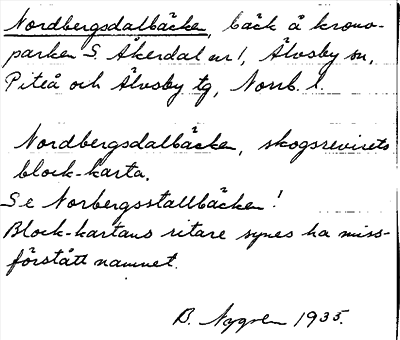 Nordbergsdalbäcken, bäck å krono-
parken S. Åkerdal nr 1, Älvsby sn,
Piteå och Älvsby tg, Norrb. l.
Nordbergsdalbäcken, skogsrevirets
block-karta.
Se Norbergsstallbäcken!
Block-kartans ritare synes ha miss-
förstått namnet.
B. Nygren 1935.